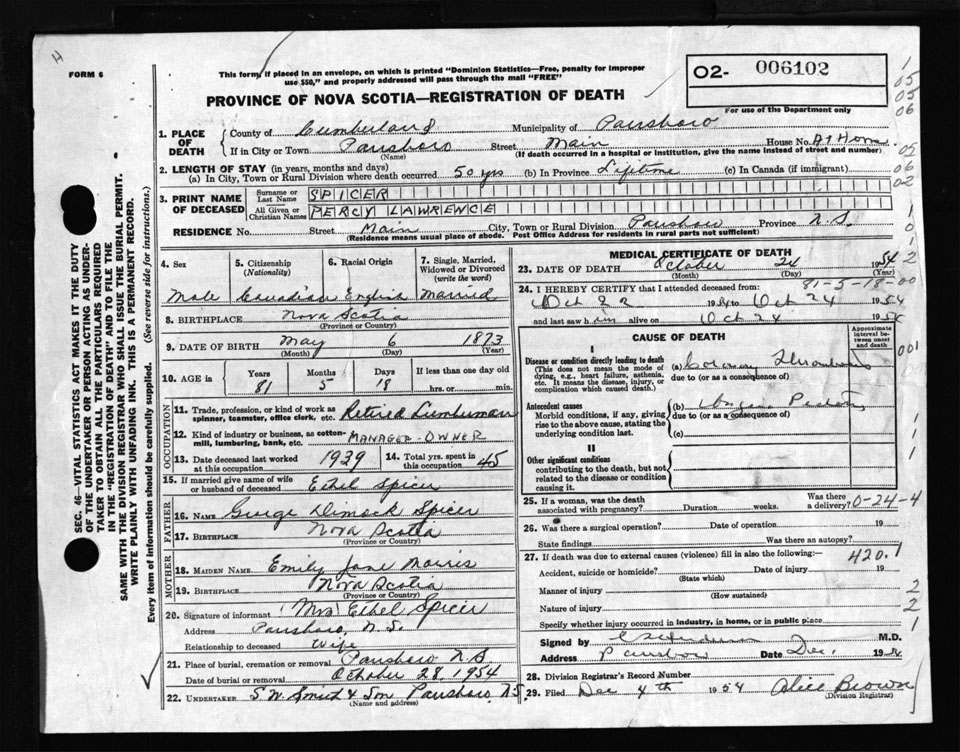 H
FORM 6
This form, if placed in an envelope, on which is printed "Dominion Statistics—Free, penalty for improper
use $50," and properly addressed will pass through the mail "FREE"
02- 006102
For use of the Department only
PROVINCE OF NOVA SCOTIA—REGISTRATION OF DEATH
1. PLACE OF DEATH
County of Cumberland Municipality of Parrsboro
If in City or Town Parrsboro Street Main House No. At Home
(Name) (If death occurred in a hospital or institution, give the name instead of street and number)
2. LENGTH OF STAY (in years, months and days)
(a) In City, Town or Rural Division where death occurred 50 yrs (b) In Province Lifetime (c) In Canada (if immigrant)
3. PRINT NAME OF DECEASED
Surname or Last Name SPICER
All Given or Christian Names PERCY LAWRENCE
RESIDENCE No. Street Main City, Town or Rural Division Parrsboro Province N.S.
(Residence means usual place of abode. Post Office Address for residents in rural parts not sufficient)
4. Sex
Male
5. Citizenship
(Nationality)
Canadian
6. Racial Origin
English
7. Single, Married, Widowed or Divorced
(write the word)
Married
8. BIRTHPLACE Nova Scotia
(Province or Country)
9. DATE OF BIRTH May 6 1873
(Month) (Day) (Year)
10. AGE in Years Months Days If less than one day
81 5 18 hrs. or min.
OCCUPATION
11. Trade, profession, or kind of work as
spinner, teamster, office clerk, etc. Retired Lumberman
12. Kind of industry or business, as cotton-
mill, lumbering, bank, etc. MANAGER-OWNER
13. Date deceased last worked
at this occupation 1939
14. Total yrs. spent in
this occupation 45
15. If married give name of wife
or husband of deceased Ethel Spicer
FATHER
16. NAME George Dimock Spicer
17. BIRTHPLACE Nova Scotia
(Province or Country)
MOTHER
18. MAIDEN NAME Emily Jane Morris
19. BIRTHPLACE Nova Scotia
(Province or Country)
20. Signature of informant Mrs Ethel Spicer
Address Parrsboro, N.S.
Relationship to deceased Wife
21. Place of burial, cremation or removal Parrsboro N.S
Date of burial or removal October 28, 1954
22. UNDERTAKER S.W. Smith & Son Parrsboro N.S.
(Name and address)
MEDICAL CERTIFICATE OF DEATH
23. DATE OF DEATH October 24 1954
(Month) (Day) (Year)
81-5-18-00
24. I HEREBY CERTIFY that I attended deceased from:
Oct 22 1954 to Oct 24 1954
and last saw him alive on Oct 24 1954
CAUSE OF DEATH
Approximate interval between onset and death
I
Disease or condition directly leading to death
(This does not mean the mode of dying, e.g., heart failure, asthenia, etc. It means the disease, injury, or complication which caused death.)
(a) Coronary Thrombosis
due to (or as a consequence of)
Antecedent causes
Morbid conditions, if any, giving rise to the above cause, stating the underlying condition last.
(b) Angina Pectoris
due to (or as a consequence of)
(c)
II
Other significant conditions
contributing to the death, but not related to the disease or condition causing it.
25. If a woman, was the death
associated with pregnancy? Duration weeks. Was there a delivery? 0-24-4
26. Was there a surgical operation? Date of operation 19
State findings Was there an autopsy?
27. If death was due to external causes (violence) fill in also the following:— 420.1
Accident, suicide or homicide? Date of injury 19
(State which)
Manner of injury
(How sustained)
Nature of injury
Specify whether injury occurred in industry, in home, or in public place
Signed by M.D.
Address Parrsboro Date Dec. 1954
28. Division Registrar's Record Number
29. Filed Dec 4th 1954 Alice Brown
(Division Registrar)
SEC. 46—VITAL STATISTICS ACT MAKES IT THE DUTY
OF THE UNDERTAKER OR PERSON ACTING AS UNDER-
TAKER TO OBTAIN ALL THE PARTICULARS REQUIRED
IN THE "REGISTRATION OF DEATH" AND TO FILE THE
SAME WITH THE DIVISION REGISTRAR WHO SHALL ISSUE THE BURIAL PERMIT.
WRITE PLAINLY WITH UNFADING INK. THIS IS A PERMANENT RECORD.
Every item of information should be carefully supplied. (See reverse side for instructions.)
1
05
05
06
05
06
02
1
0
1
2
001
1
1
1
2
2
1